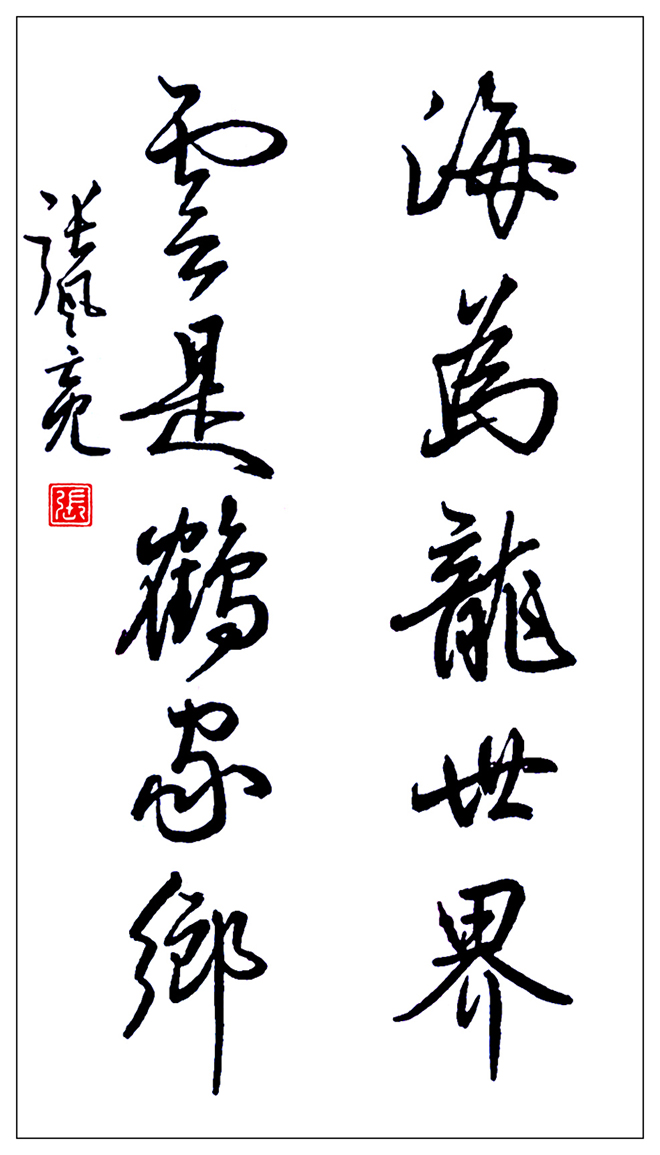 海為龍世界
雲是鶴家鄉
張風亮
張